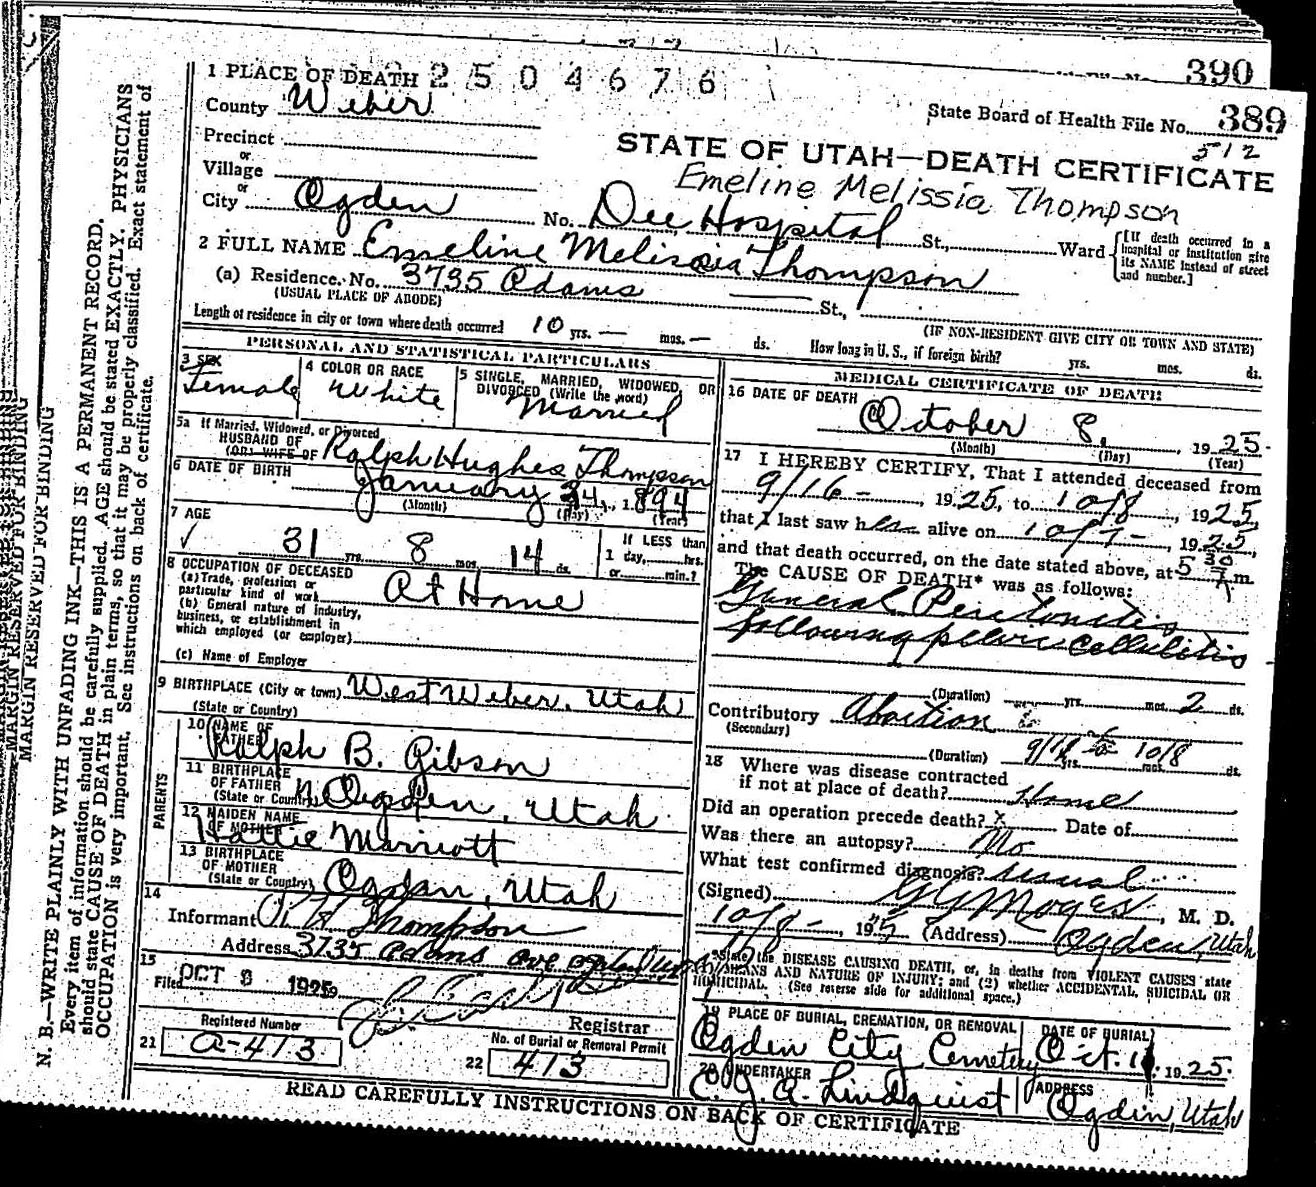 390
1 PLACE OF DEATH 2 2 5 0 4 6 7 6
State Board of Health File No. 389
County Weber
512
Precinct
STATE OF UTAH—DEATH CERTIFICATE
or
Village
Emeline Melissia Thompson
or
City Ogden No. Dee Hospital St., Ward [If death occurred in a hospital or institution give its NAME instead of street and number.]
2 FULL NAME Emeline Melissia Thompson
(a) Residence. No. 3735 Adams St.,
(USUAL PLACE OF ABODE) (IF NON-RESIDENT GIVE CITY OR TOWN AND STATE)
Length of residence in city or town where death occurred 10 yrs. — mos. — ds. How long in U. S., if foreign birth? yrs. mos. ds.
PERSONAL AND STATISTICAL PARTICULARS
3 SEX
Female
4 COLOR OR RACE
White
5 SINGLE, MARRIED, WIDOWED, OR
DIVORCED (Write the word)
Married
5a If Married, Widowed, or Divorced
HUSBAND OF
(OR) WIFE OF Ralph Hughes Thompson
6 DATE OF BIRTH January 24, 1894
(Month) (Day) (Year)
7 AGE
✓ 31 yrs. 8 mos. 14 ds.
If LESS than
1 day, hrs.
or min.?
8 OCCUPATION OF DECEASED
(a) Trade, profession or
particular kind of work At Home
(b) General nature of industry,
business, or establishment in
which employed (or employer)
(c) Name of Employer
9 BIRTHPLACE (City or town) West Weber, Utah
(State or Country)
PARENTS
10 NAME OF
FATHER Ralph B. Gibson
11 BIRTHPLACE
OF FATHER
(State or Country) N. Ogden, Utah
12 MAIDEN NAME
OF MOTHER Hattie Marriott
13 BIRTHPLACE
OF MOTHER
(State or Country) Ogden, Utah
14
Informant R. H. Thompson
Address 3735 Adams ave
15
Filed OCT 8 1925
Registrar
Registered Number
21 a-413
No. of Burial or Removal Permit
22 413
MEDICAL CERTIFICATE OF DEATH
16 DATE OF DEATH
October 8, 1925
(Month) (Day) (Year)
17 I HEREBY CERTIFY, That I attended deceased from
9/16 - , 1925, to 10/8, 1925,
that I last saw her alive on 10/7 - , 1925,
and that death occurred, on the date stated above, at 5 30 m.
The CAUSE OF DEATH* was as follows:
General Peritonitis
following pelvic cellulitis
(Duration) yrs. mos. 2 ds.
Contributory Abortion
(Secondary)
(Duration) yrs. mos. ds.
to 10/8
18 Where was disease contracted
if not at place of death? Home
Did an operation precede death? x Date of
Was there an autopsy? No
What test confirmed diagnosis? usual
(Signed) , M. D.
10/8 - , 1925 (Address) Ogden, Utah
*State the DISEASE CAUSING DEATH, or, in deaths from VIOLENT CAUSES state
(1) MEANS AND NATURE OF INJURY; and (2) whether ACCIDENTAL, SUICIDAL OR
HOMICIDAL. (See reverse side for additional space.)
19 PLACE OF BURIAL, CREMATION, OR REMOVAL
Ogden City Cemetery
DATE OF BURIAL
Oct. 1925.
20 UNDERTAKER
Lindquist
ADDRESS
Ogden, Utah
READ CAREFULLY INSTRUCTIONS ON BACK OF CERTIFICATE
MARGIN RESERVED FOR BINDING
MARGIN RESERVED FOR BINDING
N. B.—WRITE PLAINLY WITH UNFADING INK—THIS IS A PERMANENT RECORD.
Every item of information should be carefully supplied. AGE should be stated EXACTLY. PHYSICIANS
should state CAUSE OF DEATH in plain terms, so that it may be properly classified. Exact statement of
OCCUPATION is very important. See instructions on back of certificate.